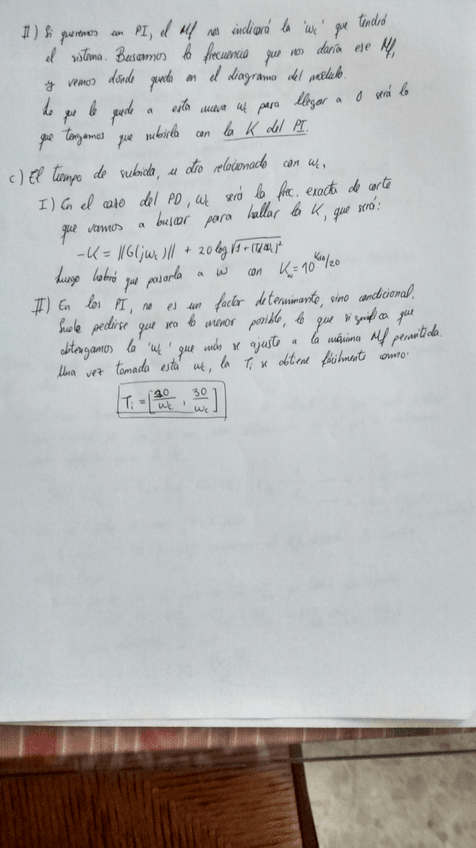 II) Si queremos un PI, el Mf nos indicará la 'wc' que tendrá
el sistema. Buscamos la frecuencia que nos daría ese Mf,
y vemos dónde queda en el diagrama del módulo.
Lo que le quede a esta nueva wc para llegar a 0 será lo
que tengamos que subirla con la K del PI.
c) El tiempo de subida, es otro relacionado con wc,
I) En el caso del PD, wc será la frec. exacta de corte
que vamos a buscar para hallar la K, que será:
-K = ||G(jwc)|| + 20 log √1+(Td wc)²
Luego habrá que pasarla a w con Kw = 10^KdB/20
II) En los PI, no es un factor determinante, sino condicional.
Suele pedirse que sea lo menor posible, lo que significa que
obtengamos la 'wc' que más se ajuste a la máxima Mf permitida.
Una vez tomada esta wc, la Ti se obtiene fácilmente como:
Ti = [20/wc , 30/wc]